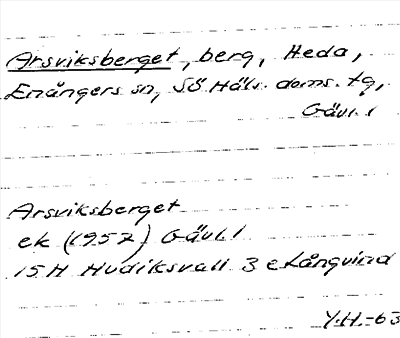 Arsviksberget, berg, Heda,
Enångers sn, SÖ Häls. doms. tg,
Gävl. l
Arsviksberget
ek (1957) Gävl. l
15H Hudiksvall 3 e Långvind
Y.H.-63